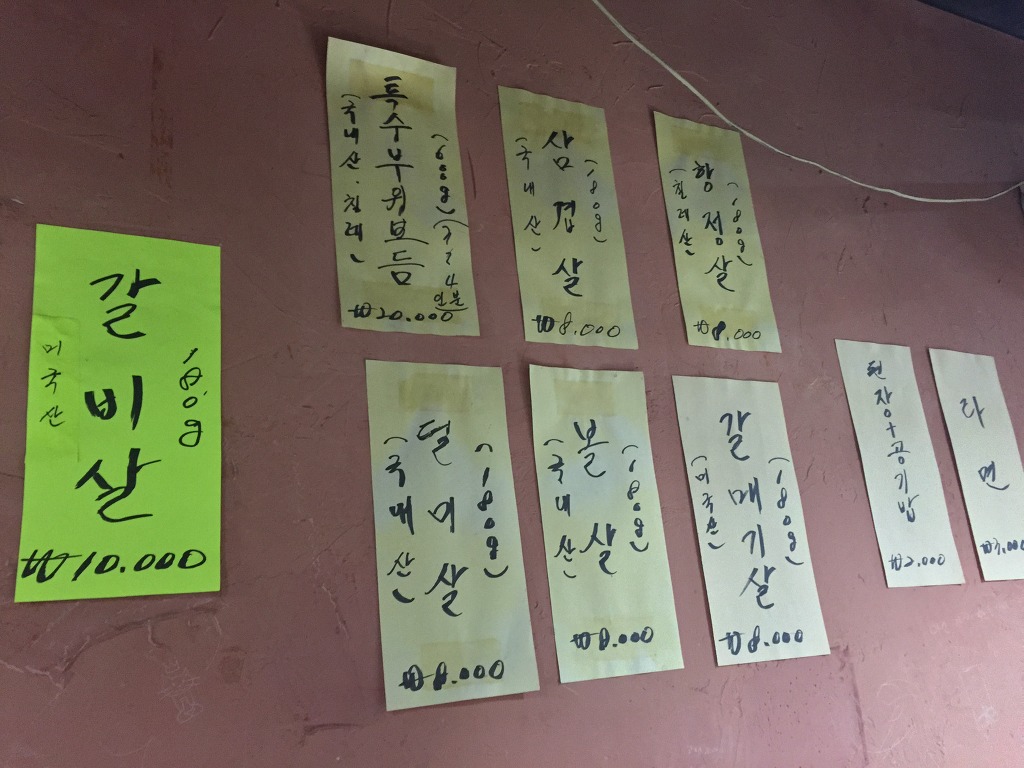 갈비살
미국산
180g
₩10.000
특수부위모듬
(국내산.칠레)
(600g)
₩20.000
삼겹살
(국내산)
(180g)
₩8.000
항정살
(칠레산)
(180g)
₩8.000
덜미살
(국내산)
(180g)
₩8.000
볼살
(국내산)
(180g)
₩8.000
갈매기살
(미국산)
(180g)
₩8.000
된장+공기밥
₩2.000
라면